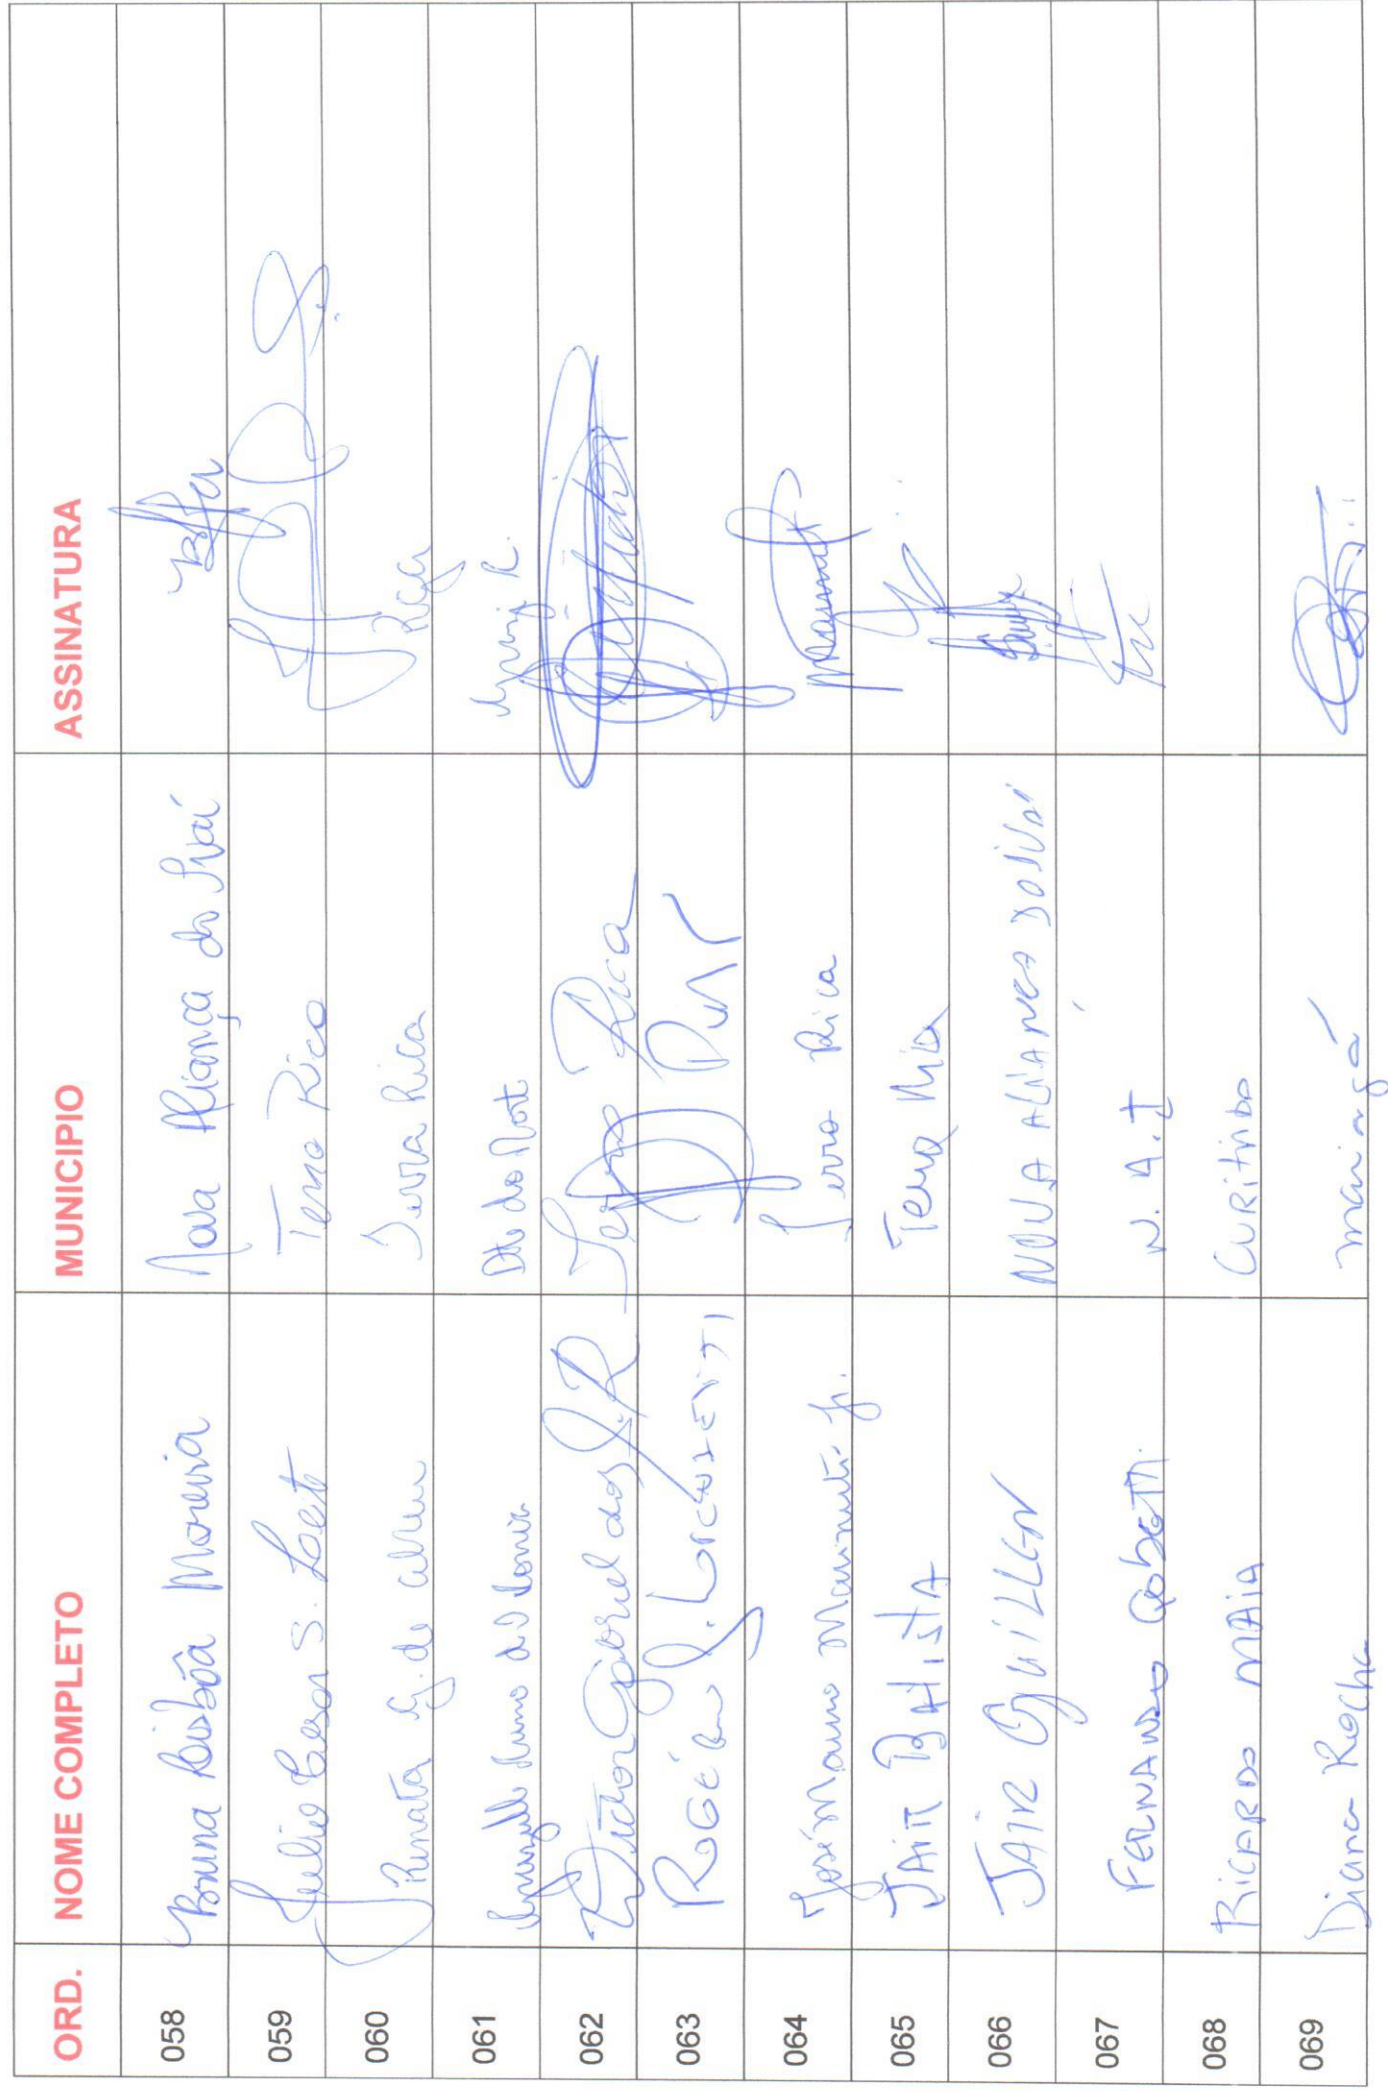 ORD. NOME COMPLETO MUNICIPIO ASSINATURA
058 Bruna Lisbôa Moreira Nova Aliança do Ivaí
059 Julio Cesar S. Leite Terra Rica
060 Renata G. de Abreu Terra Rica R
061 do Nort
062 Victor Gabriel dos S. R Terra Rica
063 Rogério
064 José Mauro Marinute Jr. Terra Rica
065 JAIR BATISTA Terra Rica
066 JAIR GUILLEN NOVA ALIANÇA DO IVAI
067 FERNANDO N. A. I
068 RICARDO MAIA CURITIBA
069 Diana Rocha maringá